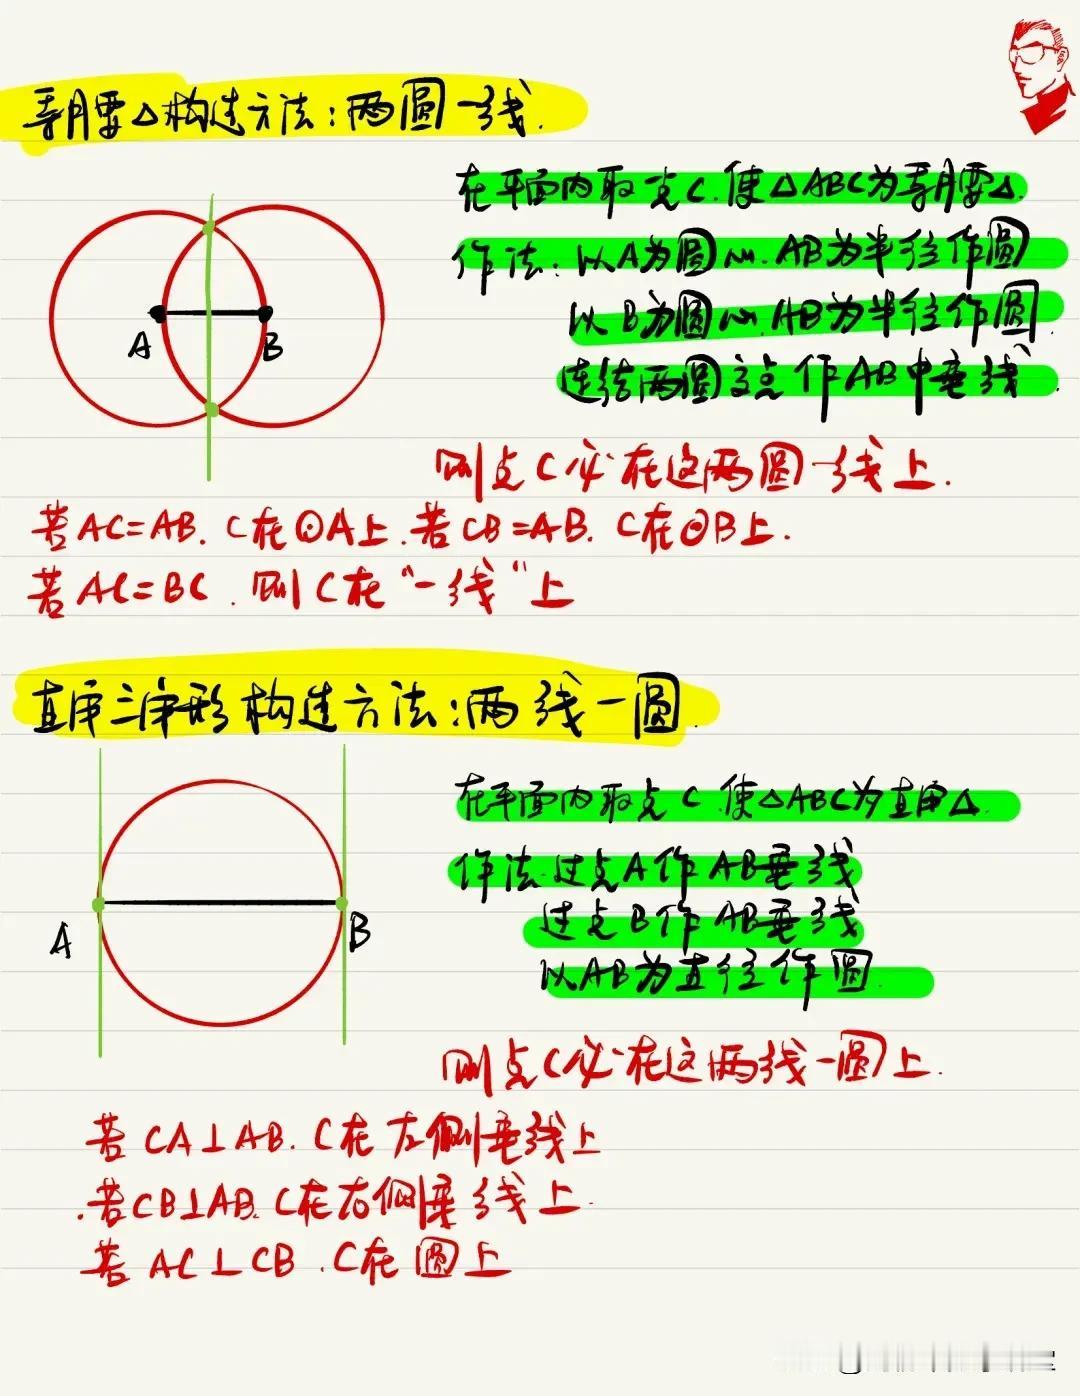 等腰△构造方法:两圆一线.
在平面内取一点C.使△ABC为等腰△.
作法:以A为圆心.AB为半径作圆
以B为圆心.AB为半径作圆.
连结两圆交点作AB中垂线.
A
B
则点C必在这两圆一线上.
若AC=AB. C在⊙A上.若CB=AB. C在⊙B上.
若AC=BC.则C在“一线”上
直角三角形构造方法:两线一圆.
在平面内取点C.使△ABC为直角△.
作法.过点A作AB垂线
过点B作AB垂线
以AB为直径作圆.
A
B
则点C必在这两线一圆上.
若CA⊥AB. C在左侧垂线上
.若CB⊥AB. C在右侧垂线上.
若AC⊥CB.C在圆上